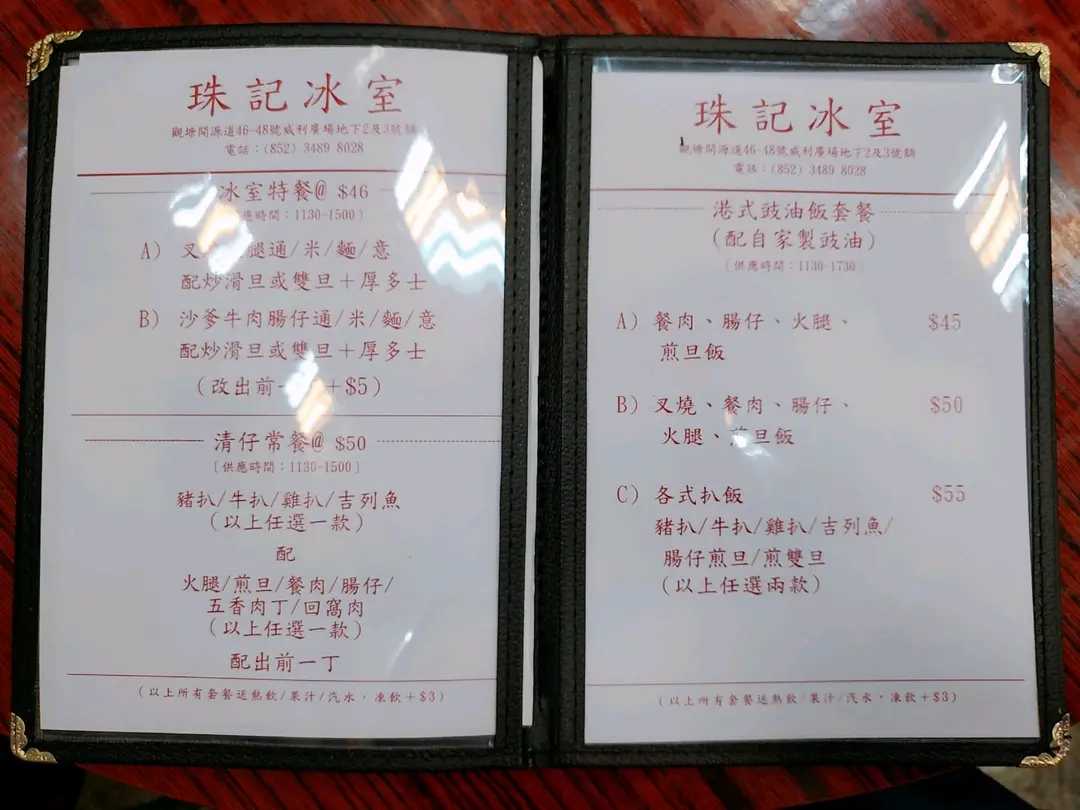 珠記冰室
觀塘開源道46-48號威利廣場地下2及3號舖
電話：(852) 3489 8028
冰室特餐@ $46
應時間：1130-1500〕
A) 叉 腿通/米/麵/意
配炒滑旦或雙旦＋厚多士
B) 沙爹牛肉腸仔通/米/麵/意
配炒滑旦或雙旦＋厚多士
(改出前一 ＋$5)
清仔常餐@ $50
〔供應時間：1130-1500〕
豬扒/牛扒/雞扒/吉列魚
(以上任選一款)
配
火腿/煎旦/餐肉/腸仔/
五香肉丁/回窩肉
(以上任選一款)
配出前一丁
(以上所有套餐送熱飲/果汁/汽水，凍飲＋$3)
珠記冰室
觀塘開源道46-48號威利廣場地下2及3號舖
電話：(852) 3489 8028
港式豉油飯套餐
(配自家製豉油)
〔供應時間：1130-1730〕
A) 餐肉、腸仔、火腿、 $45
煎旦飯
B) 叉燒、餐肉、腸仔、 $50
火腿、煎旦飯
C) 各式扒飯 $55
豬扒/牛扒/雞扒/吉列魚/
腸仔煎旦/煎雙旦
(以上任選兩款)
(以上所有套餐送熱飲/果汁/汽水，凍飲＋$3)